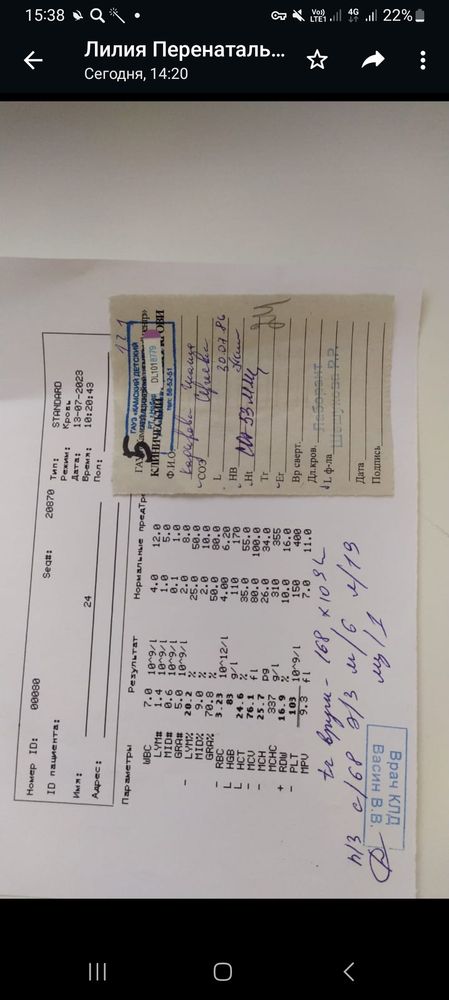 15:38 Vo)) LTE1 4G 22%
Лилия Перенаталь...
Сегодня, 14:20
Номер ID: 00080 Seq#: 20870 Тип: STANDARD
ID пациента: Режим: Кровь
Дата: 13-07-2023
Имя: 24 Время: 10:20:43
Адрес: Пол:
Параметры Результат Нормальные пред
WBC 7.0 10^9/l 4.0 12.0
LYM# 1.4 10^9/l 1.0 5.0
MID# 0.6 10^9/l 0.1 1.0
GRA# 5.0 10^9/l 2.0 8.0
- LYM% 20.2 % 25.0 50.0
MID% 9.0 % 2.0 10.0
GRA% 70.8 % 50.0 80.0
- RBC 3.23 10^12/l 4.00 6.20
L HGB 83 g/l 110 170
L HCT 24.6 % 35.0 55.0
- MCV 76.1 fl 80.0 100.0
- MCH 25.7 pg 26.0 34.0
MCHC 337 g/l 310 355
+ RDW 16.9 % 10.0 16.0
- PLT 103 10^9/l 150 400
MPV 9.3 fl 7.0 11.0
ГАУЗ «КАМСКИЙ ДЕТСКИЙ
DL1018779
КЛИНИЧЕСКИЙ КРОВИ
5
Ф.И.О.
СОЭ
L
НВ
Ht 53 мм/ч
Tr
Er
Вр сверт.
Дл.кров.
L ф-ла Лаборант
Дата
Подпись
вручн - 168 х 10
п/3 с/68 э/3 м/6 л/19
Врач КЛД
Васин В.В.